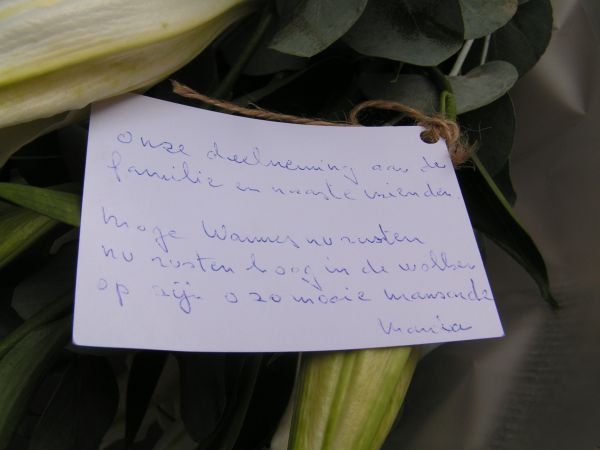 onze deelneming aan de
familie en naaste vrienden.
Moge Wannes nu rusten
nu rusten hoog in de wolken
op zijn o zo mooie mansarde
Maria